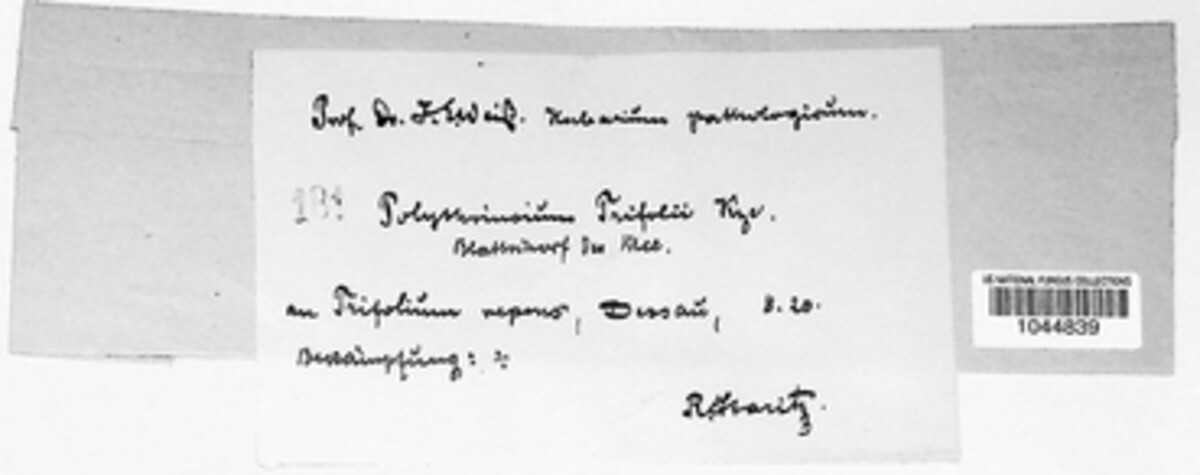 Prof. Dr. J. E. Weiß. Herbarium pathologicum.
181 Polythrincium Trifolii Kze.
des Klee.
an Trifolium repens, Dessau, 8. 20.
Bekämpfung: ?
R. Staritz.
US NATIONAL FUNGUS COLLECTIONS
1044839